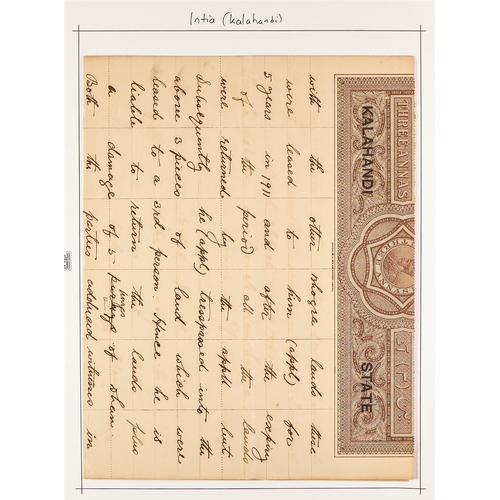 Intia (Kalahandi)
THREE ANNAS
KALAHANDI STATE
with the other bhogra lands these
were leased to him (appl) for
5 years in 1911 and after the expiry
of the period all the lands
were returned by the appll but
Subsequently he (appl) tresspassed into the
above 3 pieces of land which were
leased to a 3rd person. Hence he is
liable to return the lands plus
a damage of 5 purugs of dhan.
Both the parties adduced witnesses in